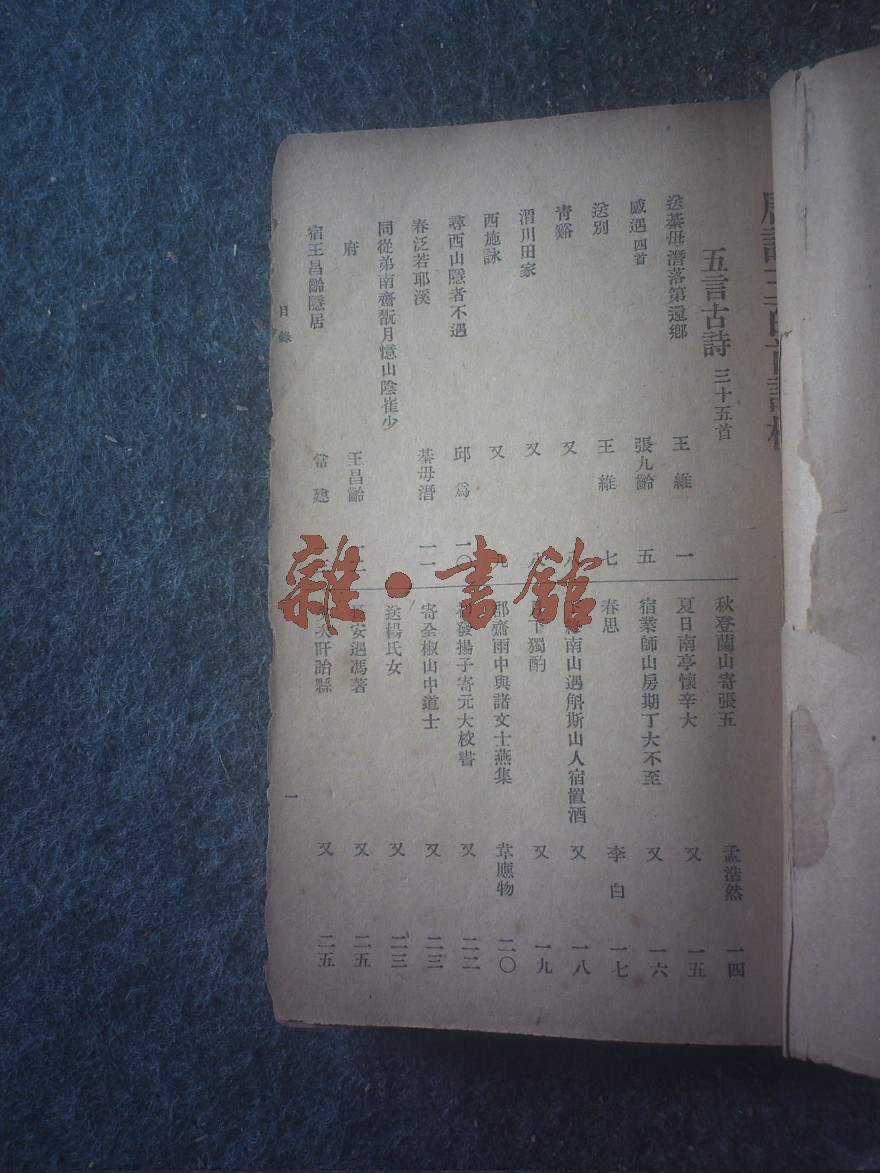 五言古詩 三十五首
送綦毋潛落第還鄉 王維 一
感遇 四首 張九齡 五
送別 王維 七
青谿 又 八
渭川田家 又 八
西施詠 又 九
尋西山隱者不遇 邱爲 一〇
春泛若耶溪 綦毋潛 一一
同從弟南齋翫月憶山陰崔少
府 王昌齡
宿王昌齡隱居 常建
秋登蘭山寄張五 孟浩然 一四
夏日南亭懷辛大 又 一五
宿業師山房期丁大不至 又 一六
春思 李白 一七
南山過斛斯山人宿置酒 又 一八
下獨酌 又 一九
郡齋雨中與諸文士燕集 韋應物 二〇
發揚子寄元大校書 又 二二
寄全椒山中道士 又 二三
送楊氏女 又 二三
長安遇馮著 又 二五
夕次盱眙縣 又 二五
目錄
一
雜·書館